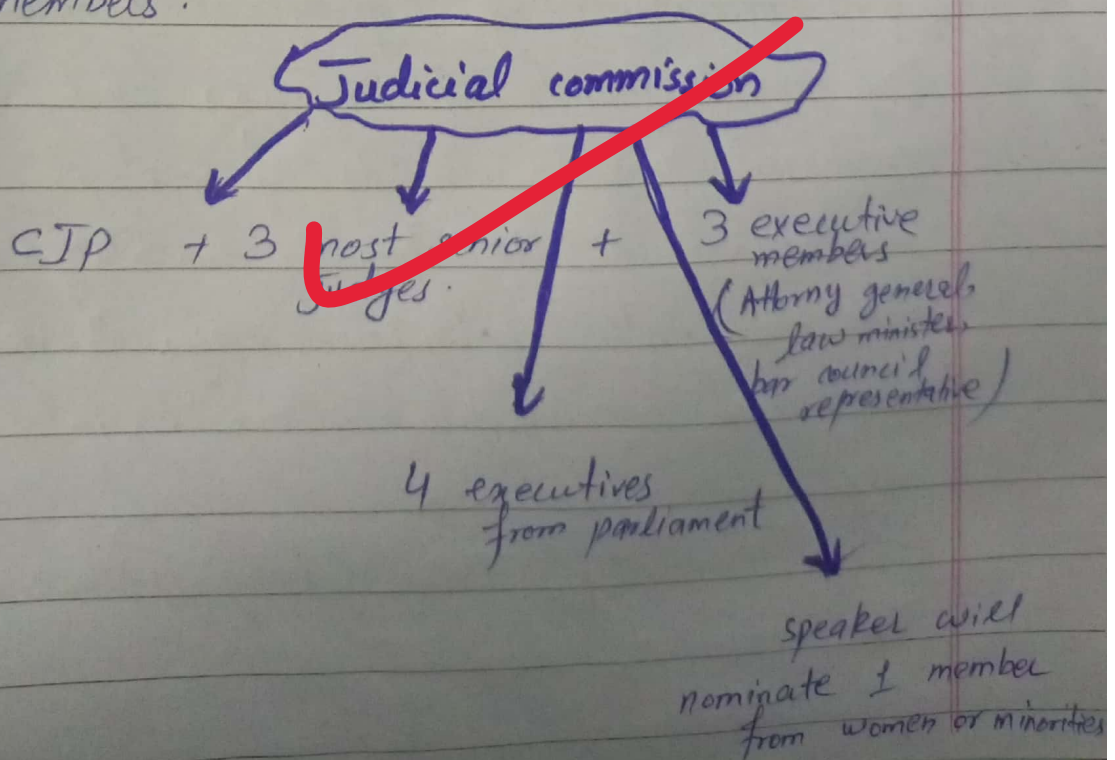 members.
Judicial commission
CJP + 3 most senior + 3 executive
judges.
members
(Attorny general,
law minister,
bar council
representative)
4 executives
from parliament
speaker will
nominate 1 member
from women or minorities